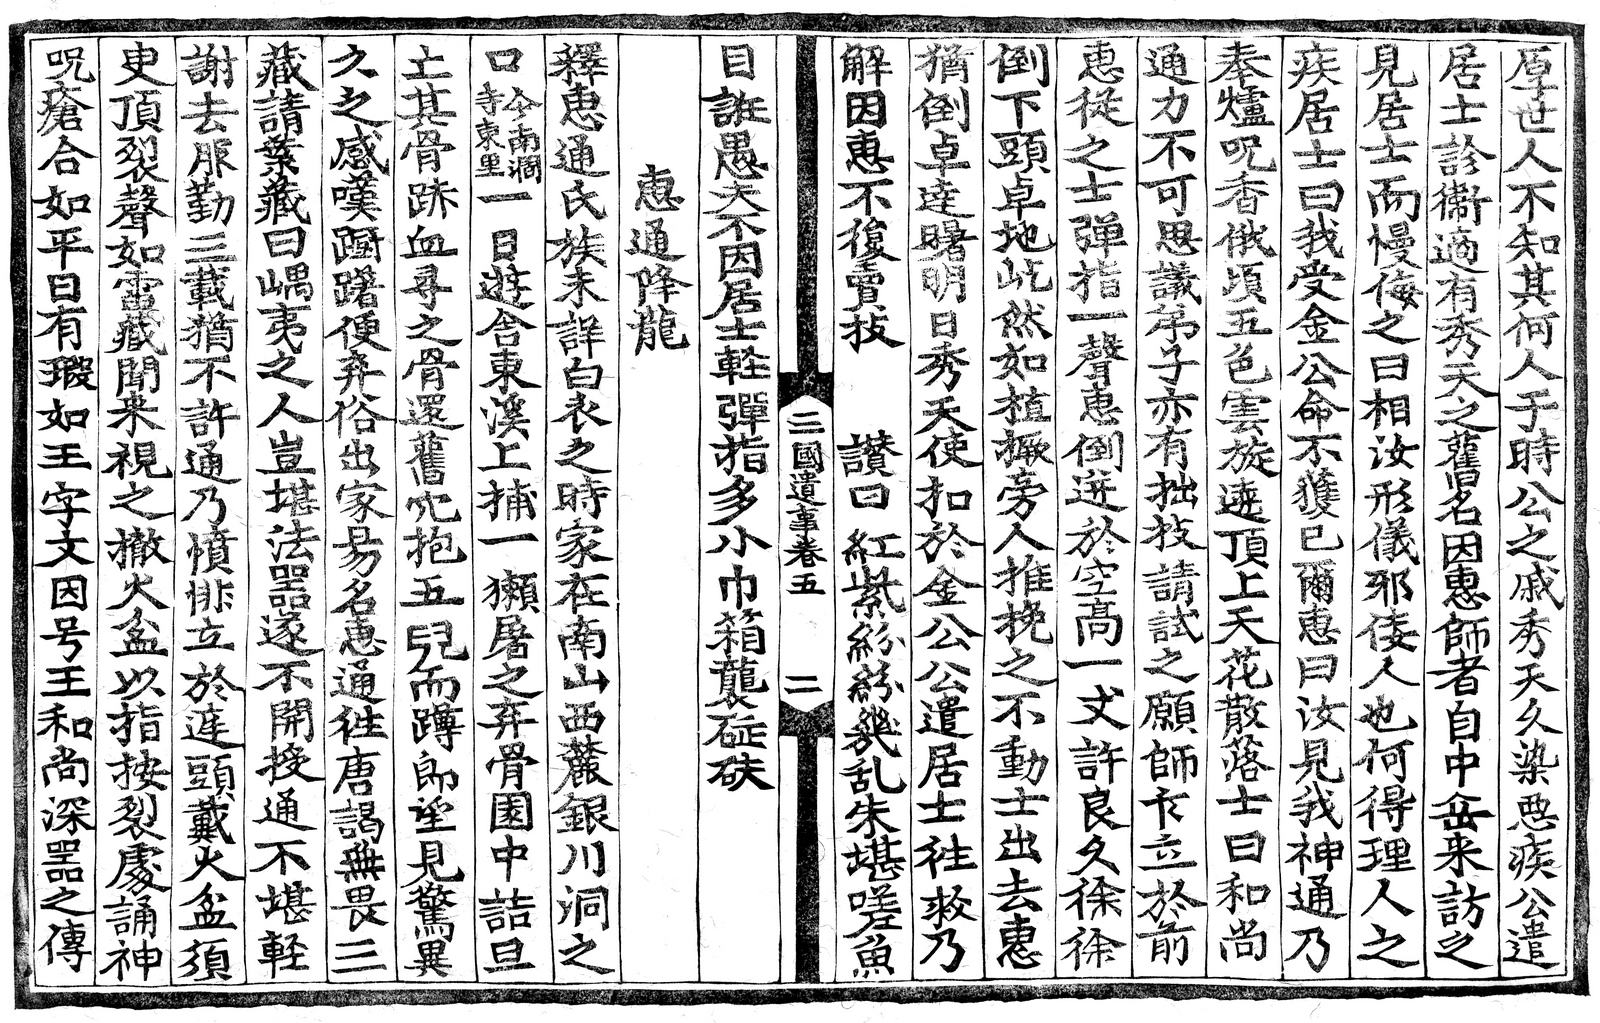 厚世人不知其何人于時公之戚秀天久染惡疾公遣
居士診衛適有秀天之舊名因惠師者自中岳来訪之
見居士而慢侮之曰相汝形儀邪佞人也何得理人之
疾居士曰我受金公命不獲已爾惠曰汝見我神通乃
奉爐呪香俄頃五色雲旋遶頂上天花散落士曰和尚
通力不可思議弟子亦有拙技請試之願師乍立於前
惠從之士彈指一聲惠倒迸於空高一丈許良久徐徐
倒下頭卓地屹然如植橛旁人推挽之不動士出去惠
猶倒卓達曙明日秀天使扣於金公公遣居士往救乃
解因惠不復賣技　讃曰　紅紫紛紛幾乱朱堪嗟魚
三國遺事卷五　二
目誑愚夫不因居士軽彈指多小巾箱襲碔砆
惠通降龍
釋惠通氏族未詳白衣之時家在南山西麓銀川洞之
口今南澗寺東里一日遊舍東溪上捕一獺屠之弃骨園中詰旦
亡其骨跡血尋之骨還舊穴抱五兒而蹲郎望見驚異
久之感嘆躕躇便弃俗出家易名惠通徃唐謁無畏三
藏請業藏曰嵎夷之人豈堪法器遂不開授通不堪軽
謝去服勤三載猶不許通乃憤悱立於庭頭戴火盆須
臾頂裂聲如雷藏聞来視之撤火盆以指按裂處誦神
呪瘡合如平日有瑕如王字文因号王和尚深器之傳